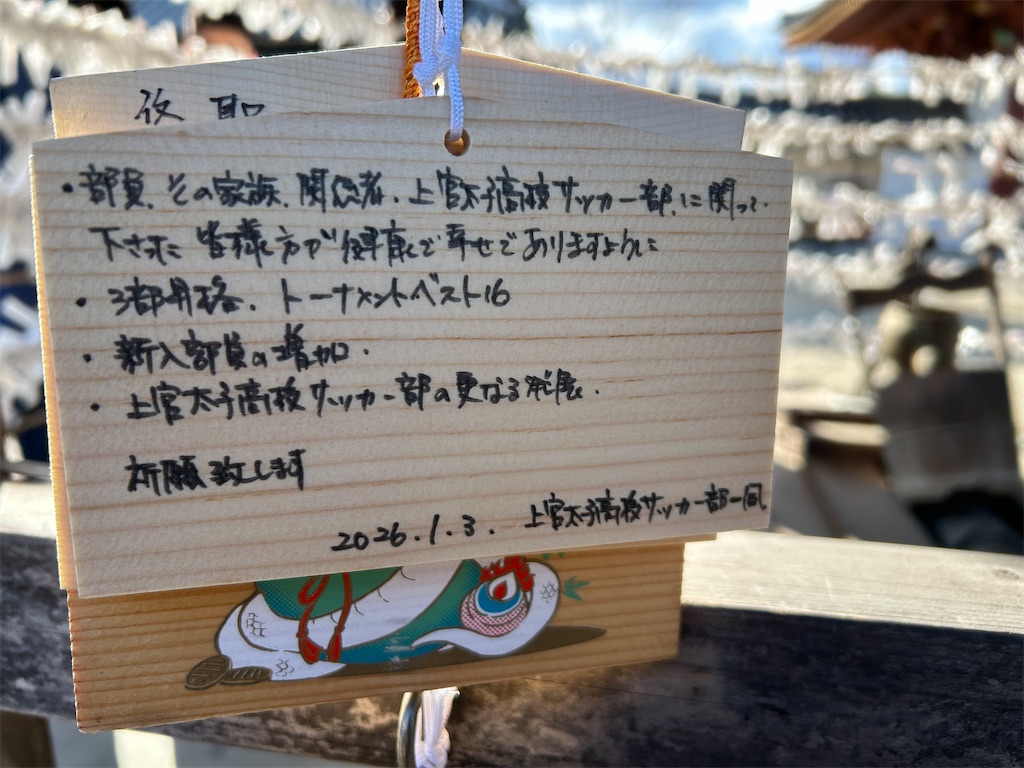 ・部員、その家族、関係者、上宮太子高校サッカー部に関って
下さった皆様方が健康で幸せでありますように
・3部昇格、トーナメントベスト16
・新入部員の増加、
・上宮太子高校サッカー部の更なる発展、
祈願致します
2026.1.3. 上宮太子高校サッカー部一同